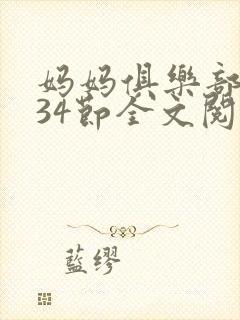 妈妈俱樂部
34節全文閱
藍缪